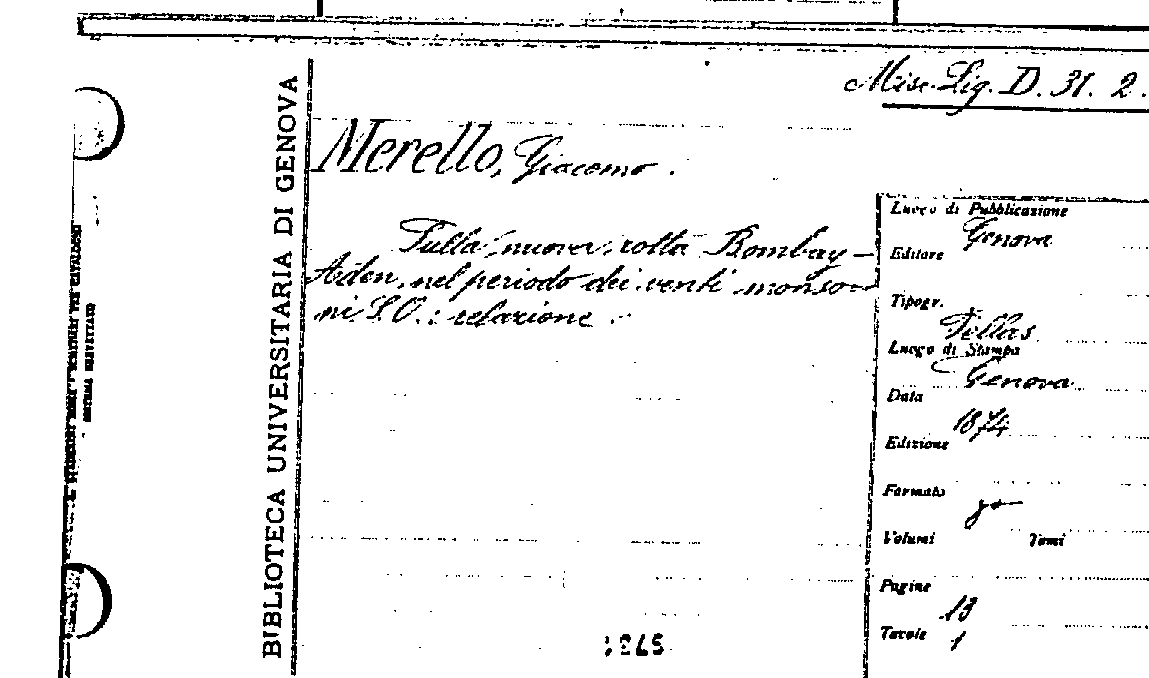 Misc. Lig. D. 31. 2.
BIBLIOTECA UNIVERSITARIA DI GENOVA
Merello, Giacomo.
Sulla nuova rotta Bombay-
Aden, nel periodo dei venti monso-
ni S.O.: relazione.
Luogo di Pubblicazione
Genova
Editore
Tipogr.
Pellas
Luogo di Stampa
Genova
Data
1874
Edizione
Formato
8°
Volumi Tomi
Pagine
13
Tavole
1